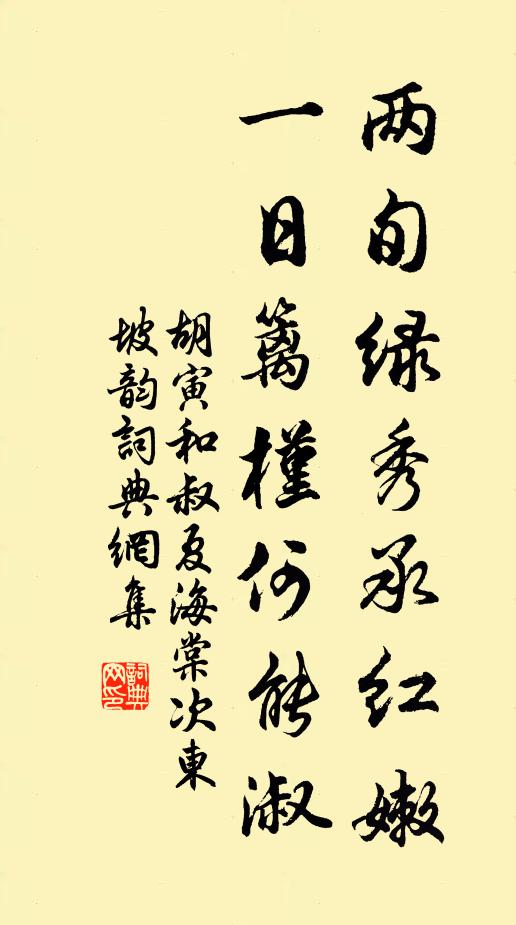 两旬绿秀承红嫩
一日篱槿何能淑
胡寅和叔夏海棠次東
坡韵詞典網集
詞典
网印